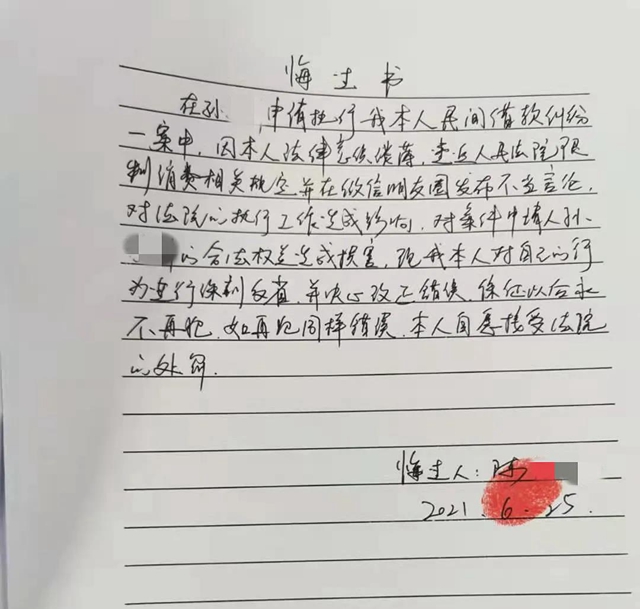 悔过书
在孙 申请执行我本人民间借款纠纷
一案中，因本人法律意识淡薄，违反人民法院限
制消费相关规定，并在微信朋友圈发布不当言论，
对法院的执行工作造成影响，对案件申请人孙
的合法权益造成损害，现我本人对自己的行
为进行深刻反省，并决心改正错误，保证以后永
不再犯，如再犯同样错误，本人自愿接受法院
的处罚．
悔过人：陈
2021.6.25.